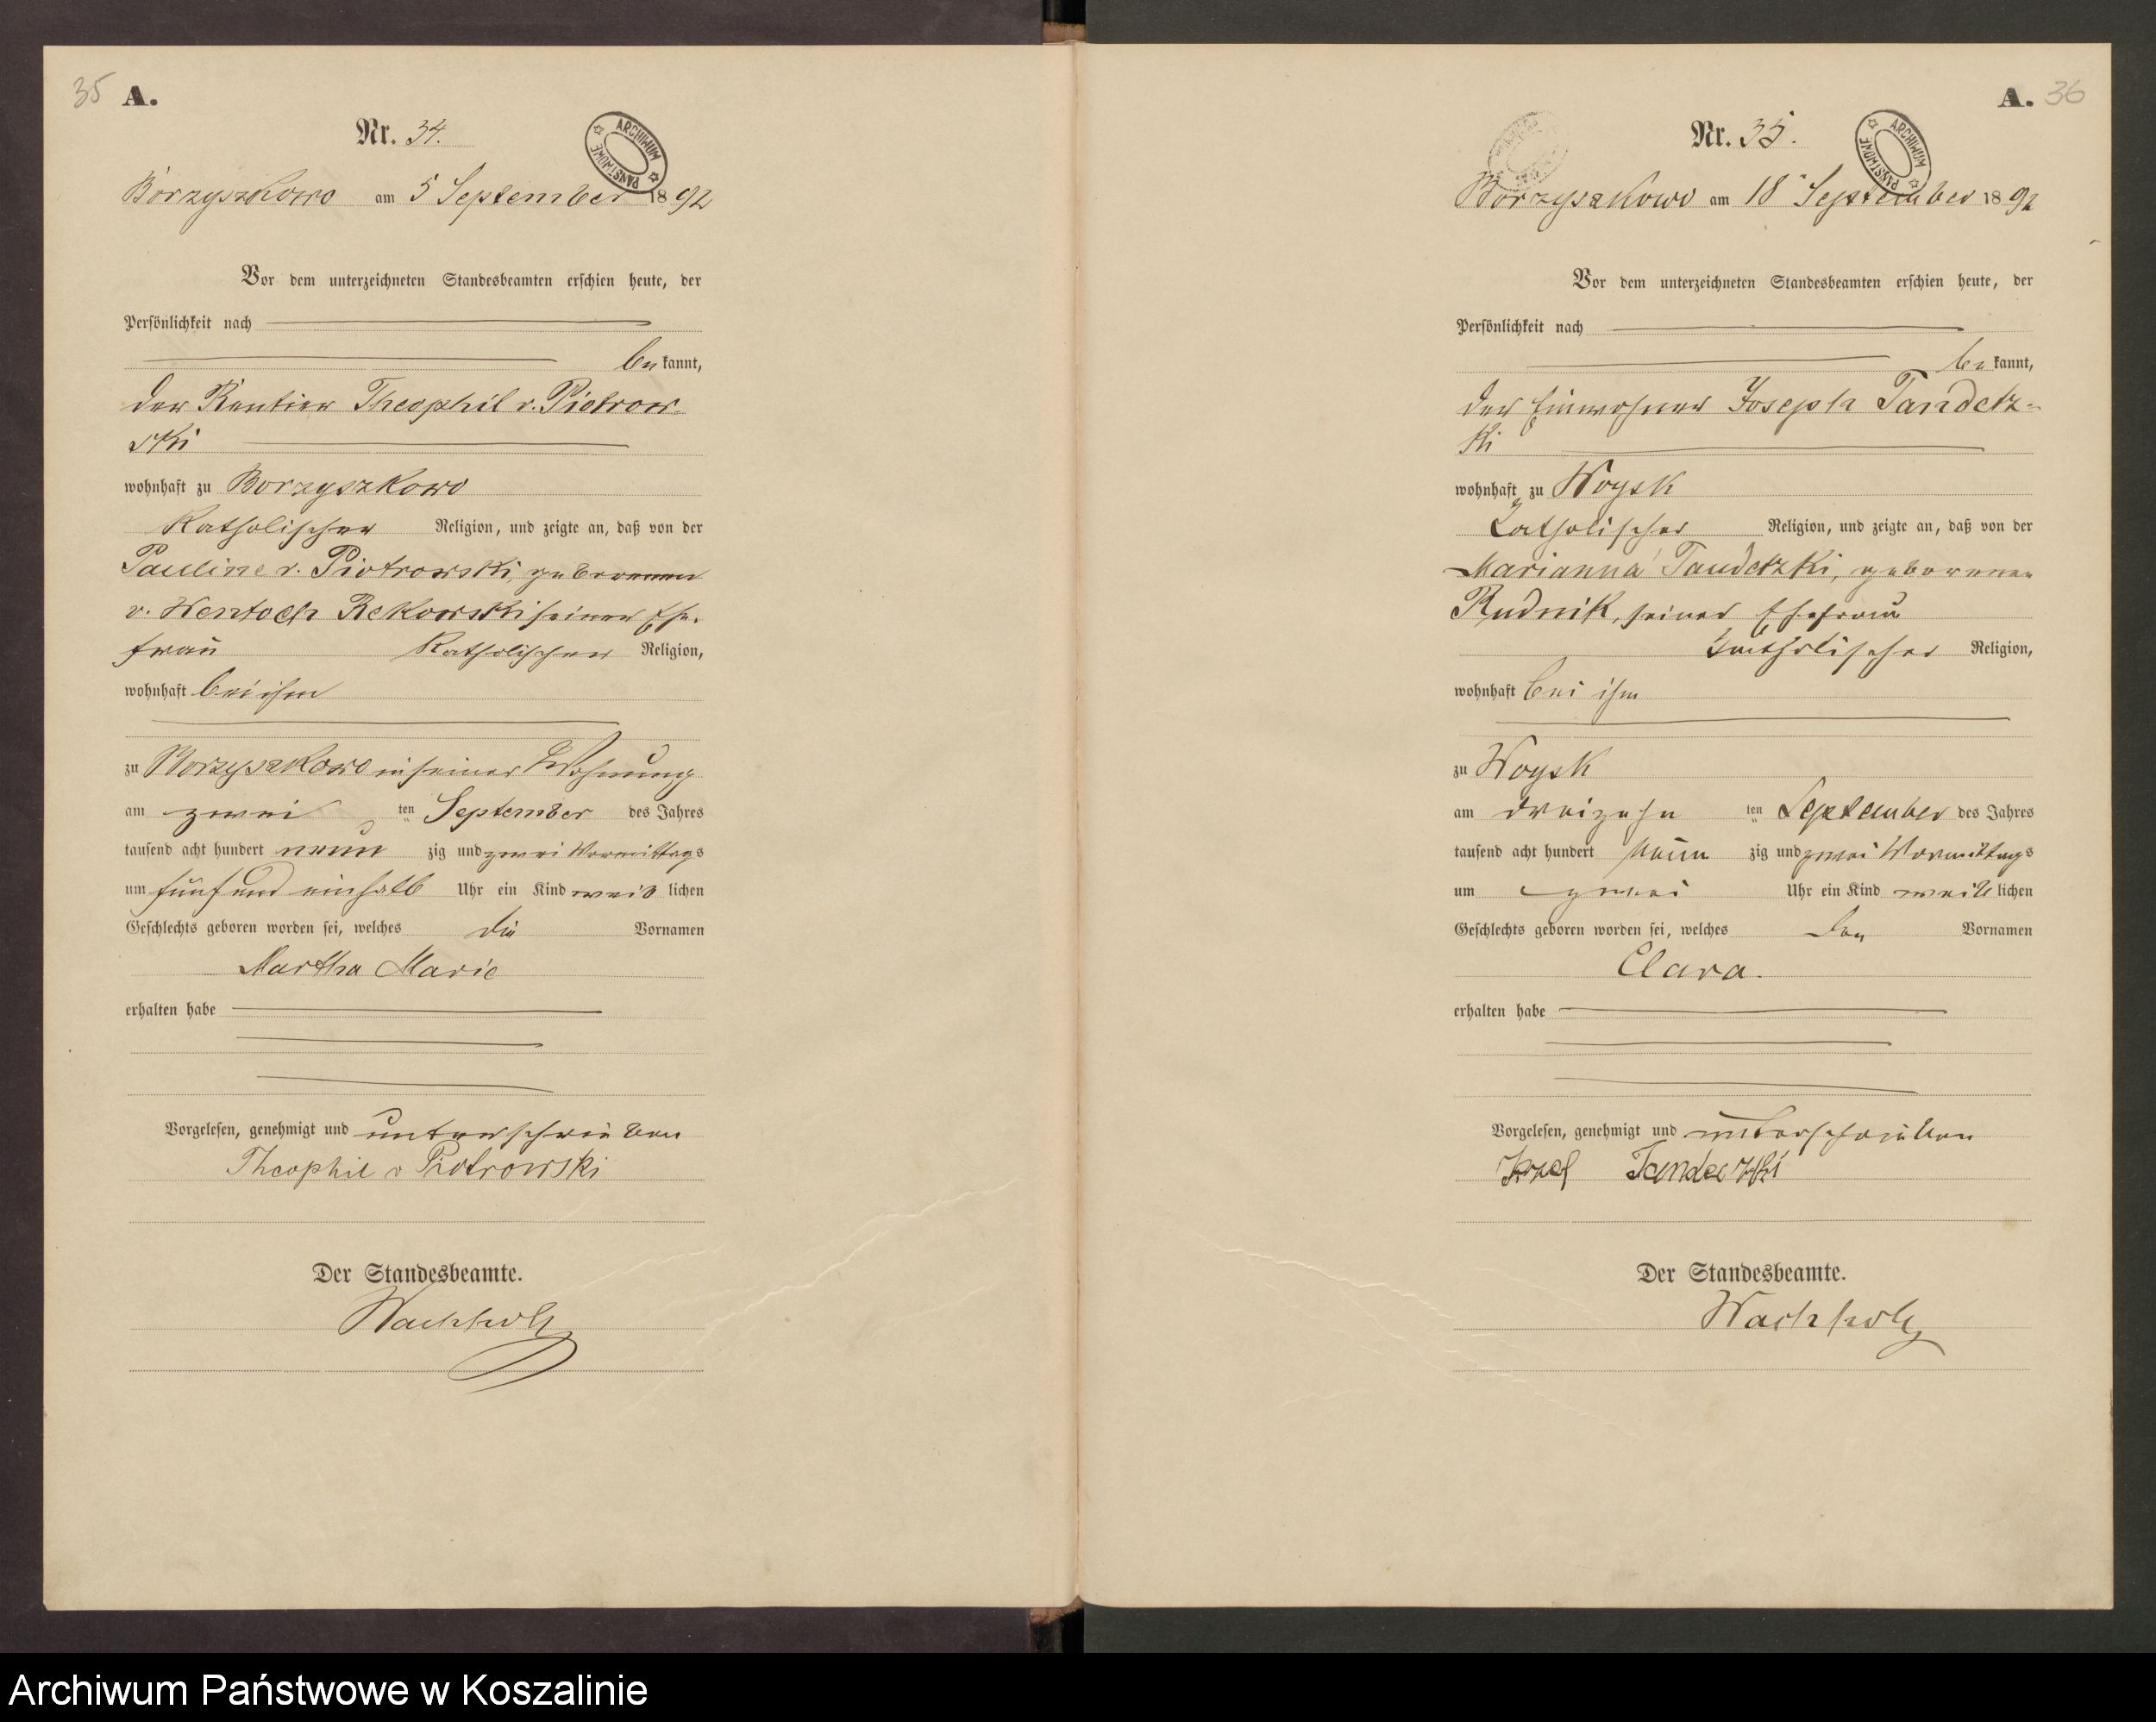 35 A.
Nr. 34.
ARCHIWUM PAŃSTWOWE
Borzyszkowo am 5 September 1892
Vor dem unterzeichneten Standesbeamten erschien heute, der
Persönlichkeit nach
bekannt,
der Rentier Theophil v. Piotrow-
ski
wohnhaft zu Borzyszkowo
katholischer Religion, und zeigte an, daß von der
Pauline v. Piotrowski, geborenen
v. Wentoch Rekowski seiner Ehe-
frau katholischer Religion,
wohnhaft bei ihm
zu Borzyszkowo in seiner Wohnung
am zwei ten September des Jahres
tausend acht hundert neun zig und zwei Vormittags
um fünf und einhalb Uhr ein Kind weib lichen
Geschlechts geboren worden sei, welches die Vornamen
Martha Marie
erhalten habe
Vorgelesen, genehmigt und unterschrieben
Theophil v Piotrowski
Der Standesbeamte.
Wachholz
A. 36
Nr. 35.
ARCHIWUM PAŃSTWOWE
Borzyszkowo am 18 September 1892
Vor dem unterzeichneten Standesbeamten erschien heute, der
Persönlichkeit nach
bekannt,
der Einwohner Joseph Tandetz-
ki
wohnhaft zu Woysk
katholischer Religion, und zeigte an, daß von der
Marianna Tandetzki, geborenen
Rudnik, seiner Ehefrau
katholischer Religion,
wohnhaft bei ihm
zu Woysk
am dreizehn ten September des Jahres
tausend acht hundert neun zig und zwei Vormittags
um zwei Uhr ein Kind weib lichen
Geschlechts geboren worden sei, welches den Vornamen
Clara.
erhalten habe
Vorgelesen, genehmigt und unterschrieben
Der Standesbeamte.
Wachholz
Archiwum Państwowe w Koszalinie